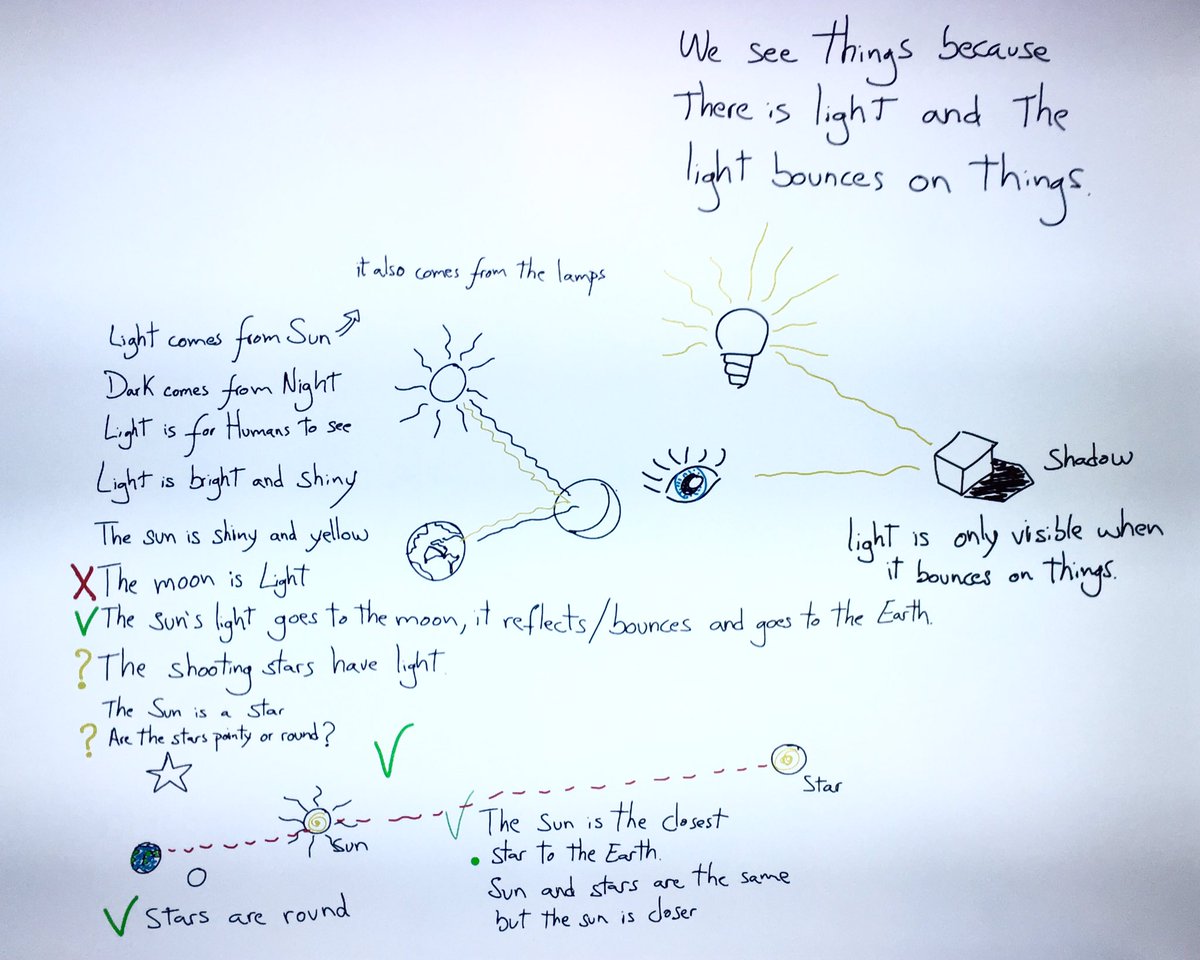 We see things because
There is light and The
light bounces on Things.
it also comes from the lamps
Light comes from Sun
Dark comes from Night
Light is for Humans to see
Light is bright and shiny
The sun is shiny and yellow
Shadow
light is only visible when
it bounces on things.
X The moon is Light
✓ The sun's light goes to the moon, it reflects/bounces and goes to the Earth.
? The shooting stars have light.
The Sun is a star
? Are the stars pointy or round?
✓
Star
Sun
✓ The Sun is the closest
• star to the Earth.
Sun and stars are the same
but the sun is closer
✓ Stars are round